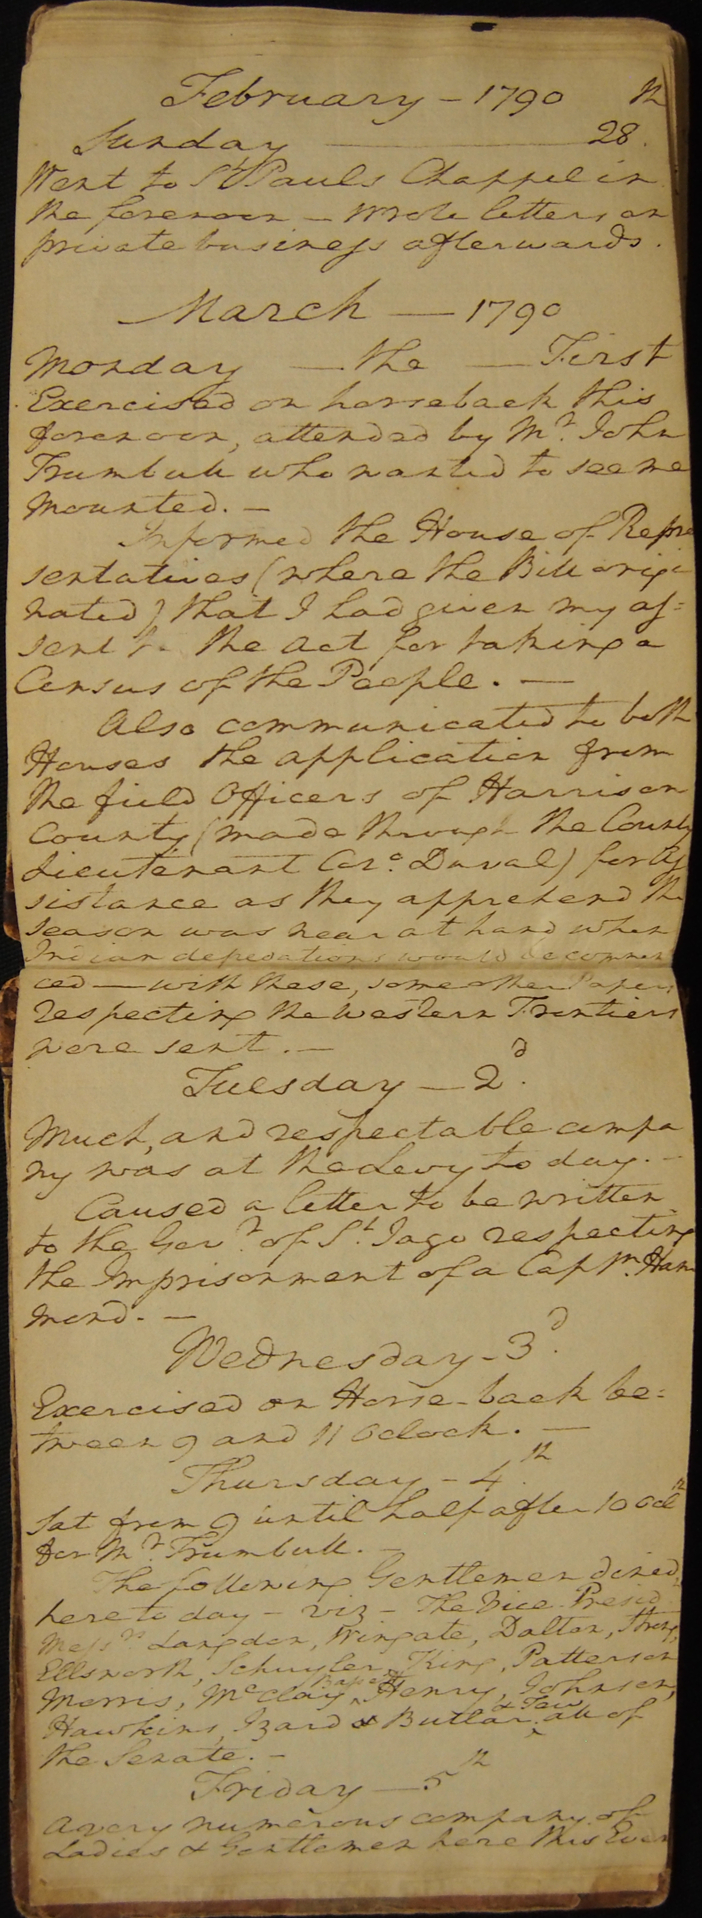 February – 1790
Sunday 28th.
Went to St Pauls Chappel in
the forenoon – wrote letters on
private business afterwards.
March — 1790
Monday — the — First
Exercised on horseback this
forenoon, attended by Mr. John
Trumbull who wanted to see me
mounted. –
Informed the House of Repre
sentatives (where the Bill origi
nated) that I had given my as=
sent to the act for taking a
Census of the People. –
Also communicated to both
Houses the application from
the field Officers of Harrison
County (made through the County
Lieutenant Colo. Duval) for As
sistance as they apprehend the
season was near at hand when
Indian depredations would be commen
ced — with these, some other Papers
respecting the Western Frontiers
were sent. –
Tuesday – 2d.
Much, and respectable compa
ny was at the Levey to day. –
Caused a letter to be written
to the Govr. of St. Iago respecting
the Imprisonment of a Captn. Ham
mond. –
Wednesday – 3d.
Exercised on Horse-back be=
tween 9 and 11 Oclock. –
Thursday – 4th.
Sat from 9 until half after 10 Ocl
for Mr. Trumbull. –
The following Gentlemen dined
here to day – viz – The Vice-Presid
Messrs. Langdon, Wingate, Dalton, Strong,
Ellsworth, Schuyler, King, Patterson
Morris, McClay, Bassett, Henry, Johnson,
Hawkins, Izard & Butlar, & Few all of
the Senate. –
Friday — 5th
A very numerous company of
Ladies & Gentlemen here this Even